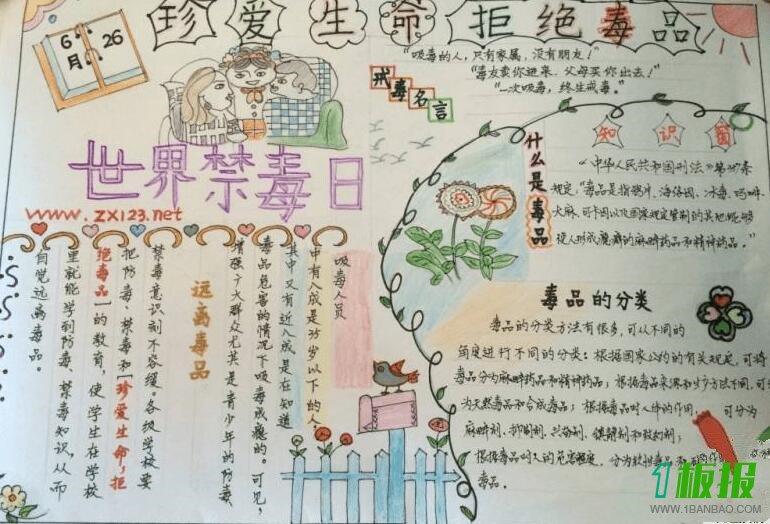 珍爱生命 拒绝毒品
6月26
"吸毒的人,只有家属,没有朋友!"
"毒友卖你进来,父母买你出去!"
"一次吸毒,终生戒毒。"
戒毒名言
世界禁毒日
www.zx123.net
知识窗
什么是毒品
《中华人民共和国刑法》第
规定,"毒品是指鸦片、海洛因、冰毒、吗啡、
大麻、可卡因以及国家规定管制的其他能够
使人形成瘾癖的麻醉药品和精神药品。"
毒品的分类
毒品的分类方法有很多,可从不同的
角度进行不同的分类:根据国家公约的有关规定,可将
毒品分为麻醉药品和精神药品;根据毒品来源和生产方法不同,可
为天然毒品和合成毒品;根据毒品对人体的作用, 可分为
麻醉剂、抑制剂、兴奋剂、镇静剂和致幻剂;
根据毒品对人的危害程度,分为软性毒品和
毒品。
吸毒人员
中有八成是35岁以下的人,
其中又有近八成是在知道
毒品危害的情况下吸毒成瘾的。可见,
增强广大群众尤其是青少年的防毒、
远离毒品
禁毒意识刻不容缓。各级学校要
把防毒、禁毒和"珍爱生命,拒
绝毒品"的教育,使学生在学校
里就能学到防毒、禁毒知识,从而
自觉远离毒品。
1板报
WWW.1BANBAO.COM